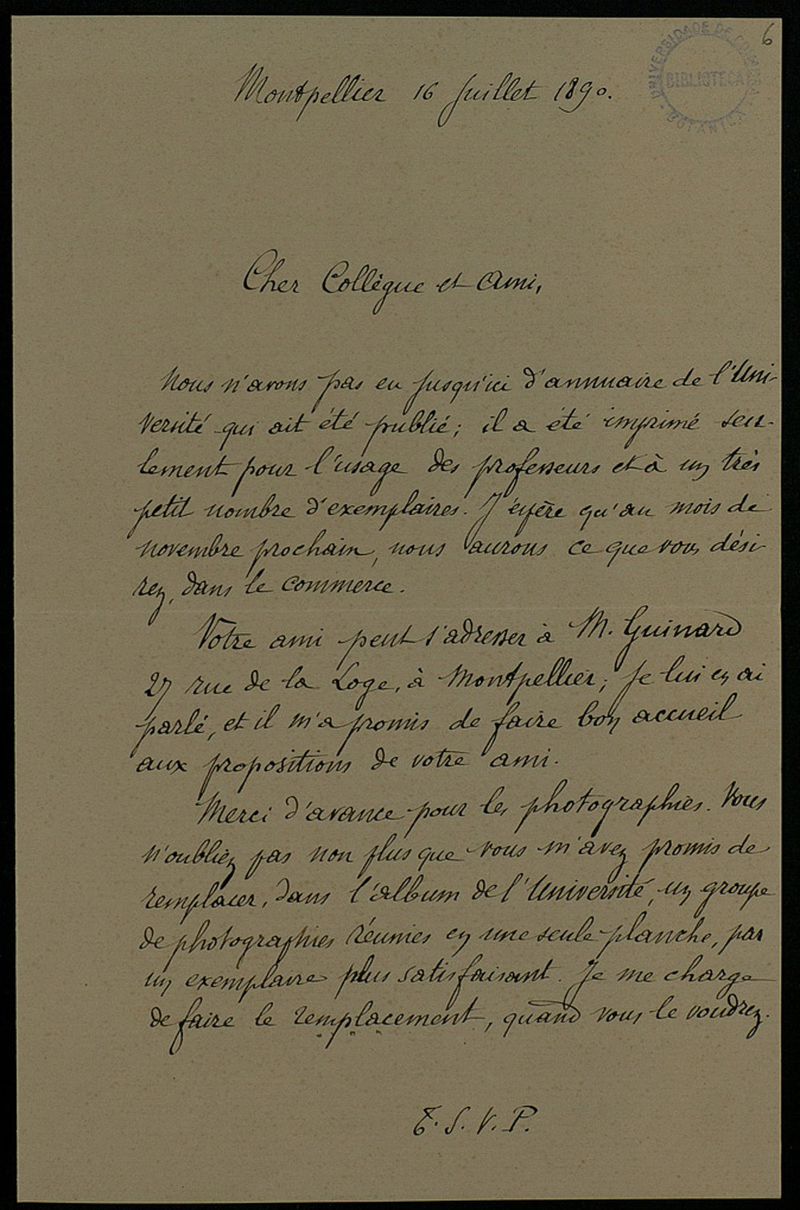 6
UNIVERSIDADE DE COIMBRA
BIBLIOTECA
BOTANICA
Montpellier 16 Juillet 1890.
Cher Collègue et Ami,
Nous n'avons pas eu jusqu'ici d'annuaire de l'Uni-
versité qui ait été publié; il a été imprimé seu-
lement pour l'usage des professeurs et à un très
petit nombre d'exemplaires. J'espère qu'au mois de
novembre prochain, nous aurons ce que vous dési-
rez, dans le commerce.
Votre ami peut s'adresser à M. Guinard
27 rue de la Loge, à Montpellier; je lui en ai
parlé, et il m'a promis de faire bon accueil
aux propositions de votre ami.
Merci d'avance pour les photographies. Vous
n'oubliez pas non plus que vous m'avez promis de
remplacer, dans l'album de l'Université, un groupe
de photographies réunies en une seule planche, par
un exemplaire plus satisfaisant. Je me charge
de faire le remplacement, quand vous le voudrez.
T. S. V. P.